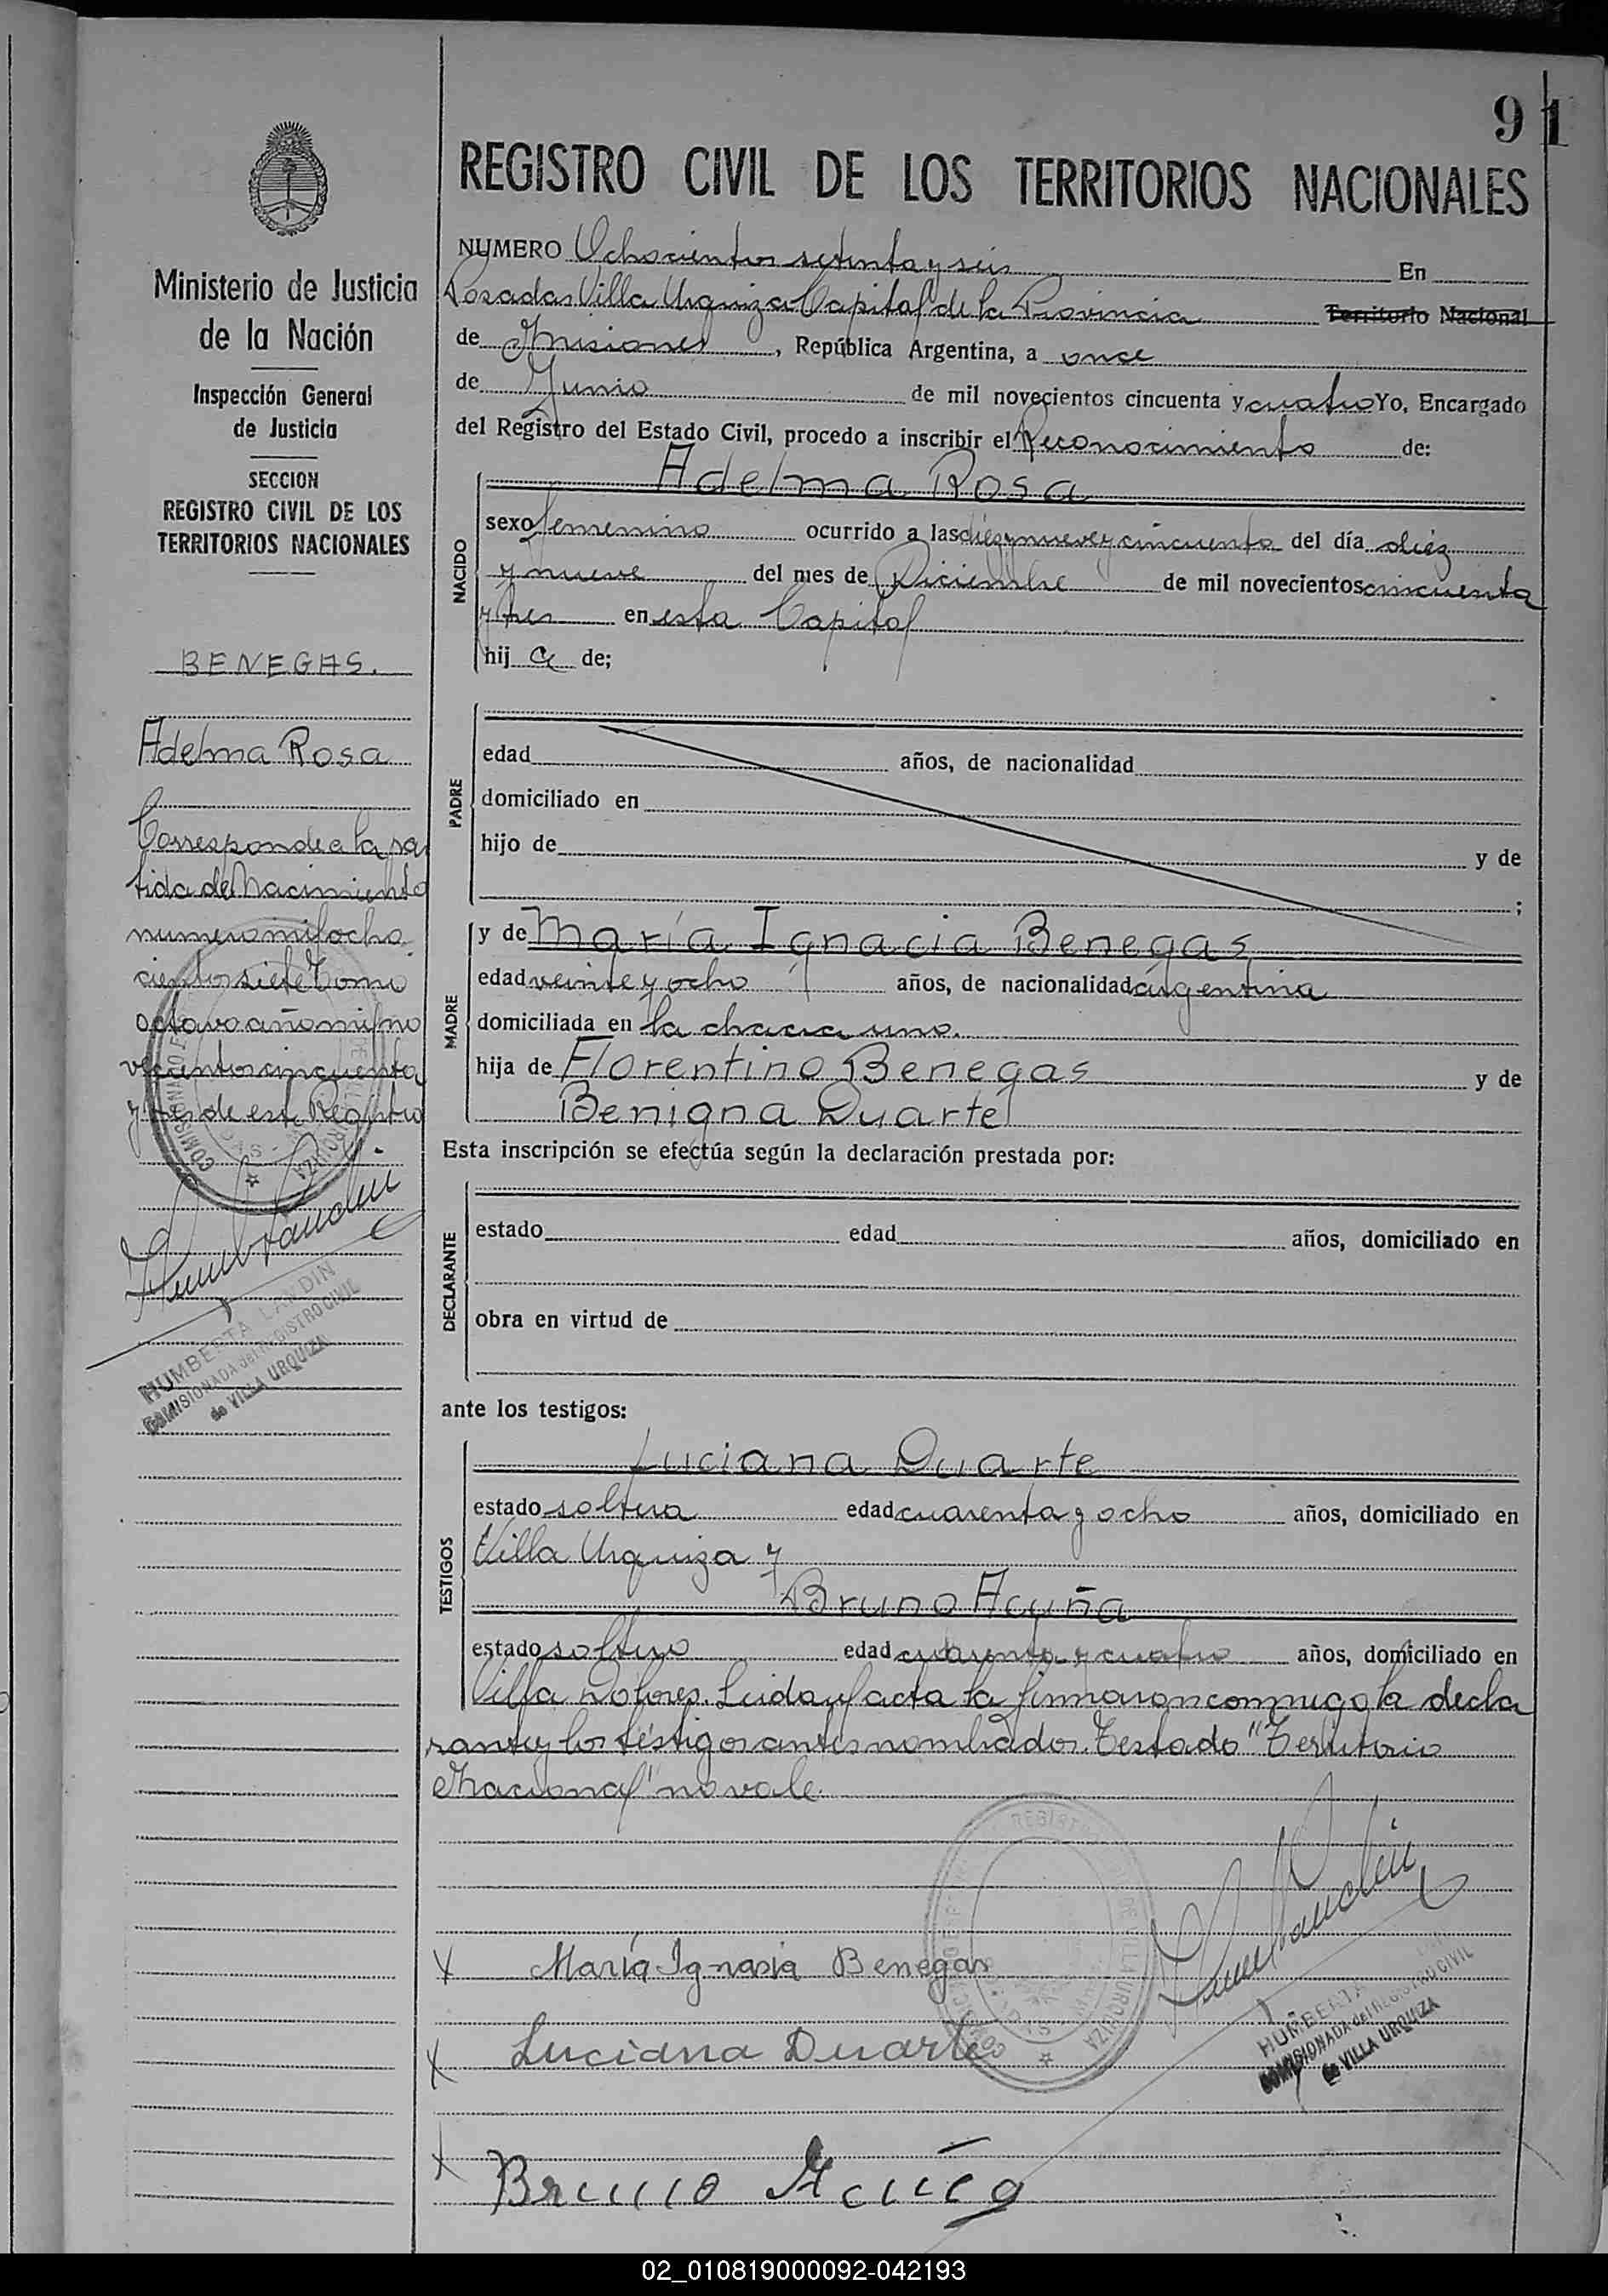 91
REGISTRO CIVIL DE LOS TERRITORIOS NACIONALES
Ministerio de Justicia
de la Nación
Inspección General
de Justicia
SECCION
REGISTRO CIVIL DE LOS
TERRITORIOS NACIONALES
BENEGAS.
Adelma Rosa
Corresponde a la par
tida de Nacimiento
numero mil ocho
cientos siete Tomo
octavo año mil no
vecientos cincuenta
y tres de este Registro
HUMBERTA LANDIN
COMISIONADA del REGISTRO CIVIL
de VILLA URQUIZA
NUMERO Ochocientos setenta y seis En
Posadas Villa Urquiza Capital de la Provincia Territorio Nacional
de Misiones, República Argentina, a once
de Junio de mil novecientos cincuenta y cuatro Yo, Encargado
del Registro del Estado Civil, procedo a inscribir el Reconocimiento de:
NACIDO
Adelma Rosa
sexo femenino ocurrido a las diez y nueve y cincuenta del día diez
y nueve del mes de Diciembre de mil novecientos cincuenta
y tres en esta Capital
hija de;
PADRE
edad años, de nacionalidad
domiciliado en
hijo de y de
;
MADRE
y de María Ignacia Benegas
edad veinte y ocho años, de nacionalidad argentina
domiciliada en la chacra uno.
hija de Florentino Benegas y de
Benigna Duarte
Esta inscripción se efectúa según la declaración prestada por:
DECLARANTE
estado edad años, domiciliado en
obra en virtud de
ante los testigos:
TESTIGOS
Luciana Duarte
estado soltera edad cuarenta y ocho años, domiciliado en
Villa Urquiza y
Bruno Acuña
estado soltero edad cuarenta y cuatro años, domiciliado en
Villa Dolores. Leida el acta la firmaron conmigo la decla
rante y los testigos antes nombrados. Testado "Territorio
Nacional" no vale.
X María Ignasia Benegas
X Luciana Duarte
X Bruno Acuña
HUMBERTA
COMISIONADA del REGISTRO CIVIL
de VILLA URQUIZA
02_010819000092-042193